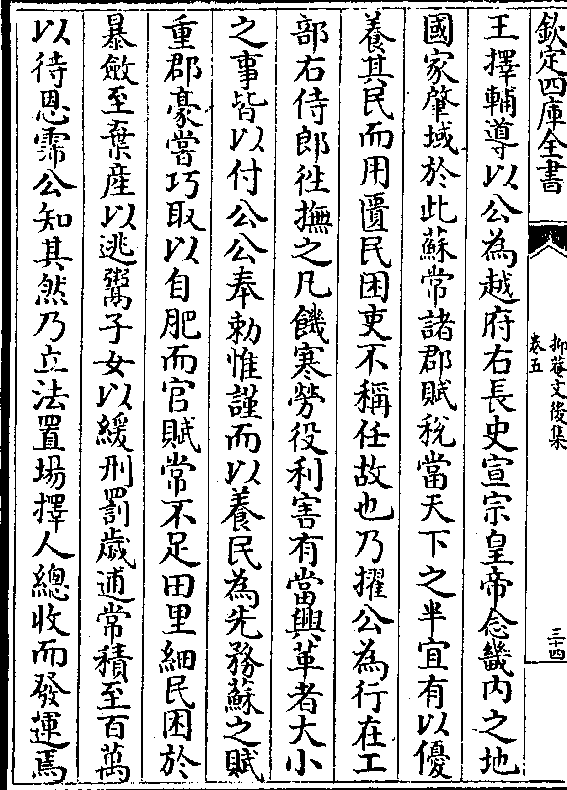 欽定四庫全書
抑菴文後集
卷五
三十四
王擇輔導以公為越府右長史宣宗皇帝念畿内之地
國家肇域於此蘇常諸郡賦稅當天下之半宜有以優
養其民而用匱民困吏不稱任故也乃擢公為行在工
部右侍郎徃撫之凡饑寒勞役利害有當興革者大小
之事皆以付公公奉勅惟謹而以養民為先務蘇之賦
重郡豪嘗巧取以自肥而官賦常不足田里細民困於
暴斂至棄産以逃鬻子女以緩刑罰歳逋常積至百萬
以待恩霈公知其然乃立法置場擇人總收而發運焉